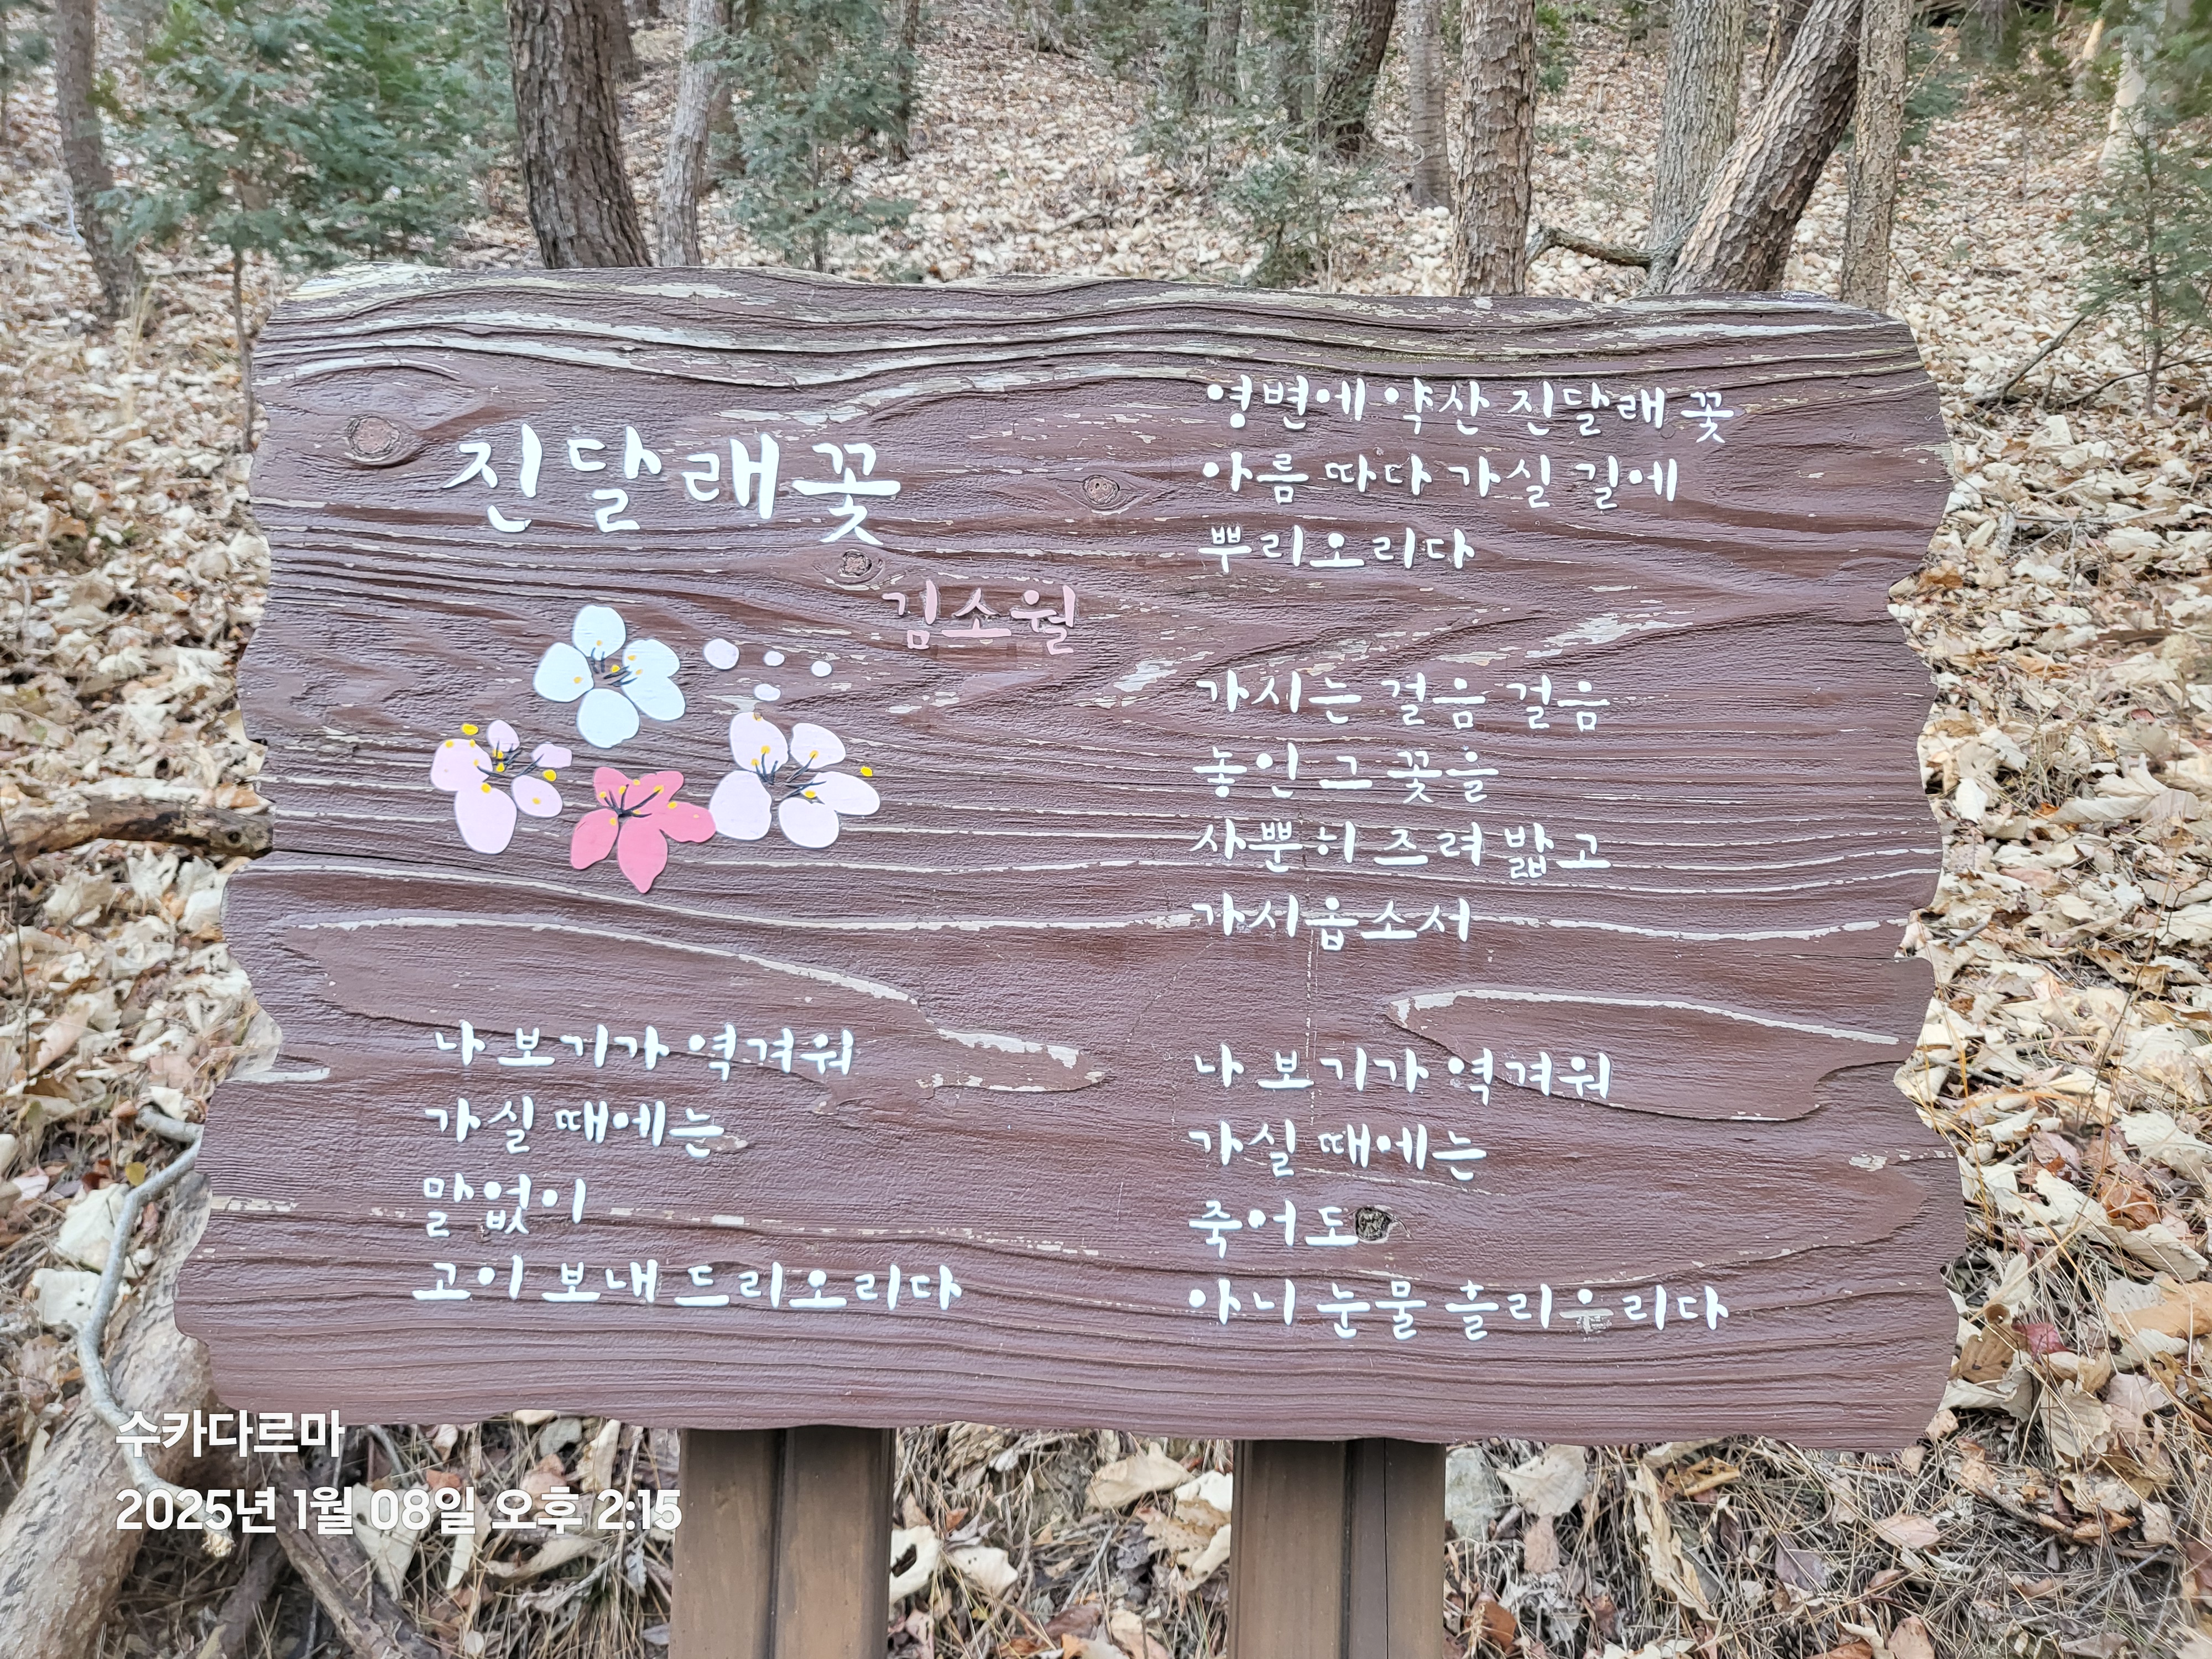 진달래꽃
김소월
나 보기가 역겨워
가실 때에는
말없이
고이 보내 드리오리다
영변에 약산 진달래 꽃
아름 따다 가실 길에
뿌리오리다
가시는 걸음 걸음
놓인 그 꽃을
사뿐히 즈려 밟고
가시옵소서
나 보기가 역겨워
가실 때에는
죽어도
아니 눈물 흘리우리다
수카다르마
2025년 1월 08일 오후 2:15